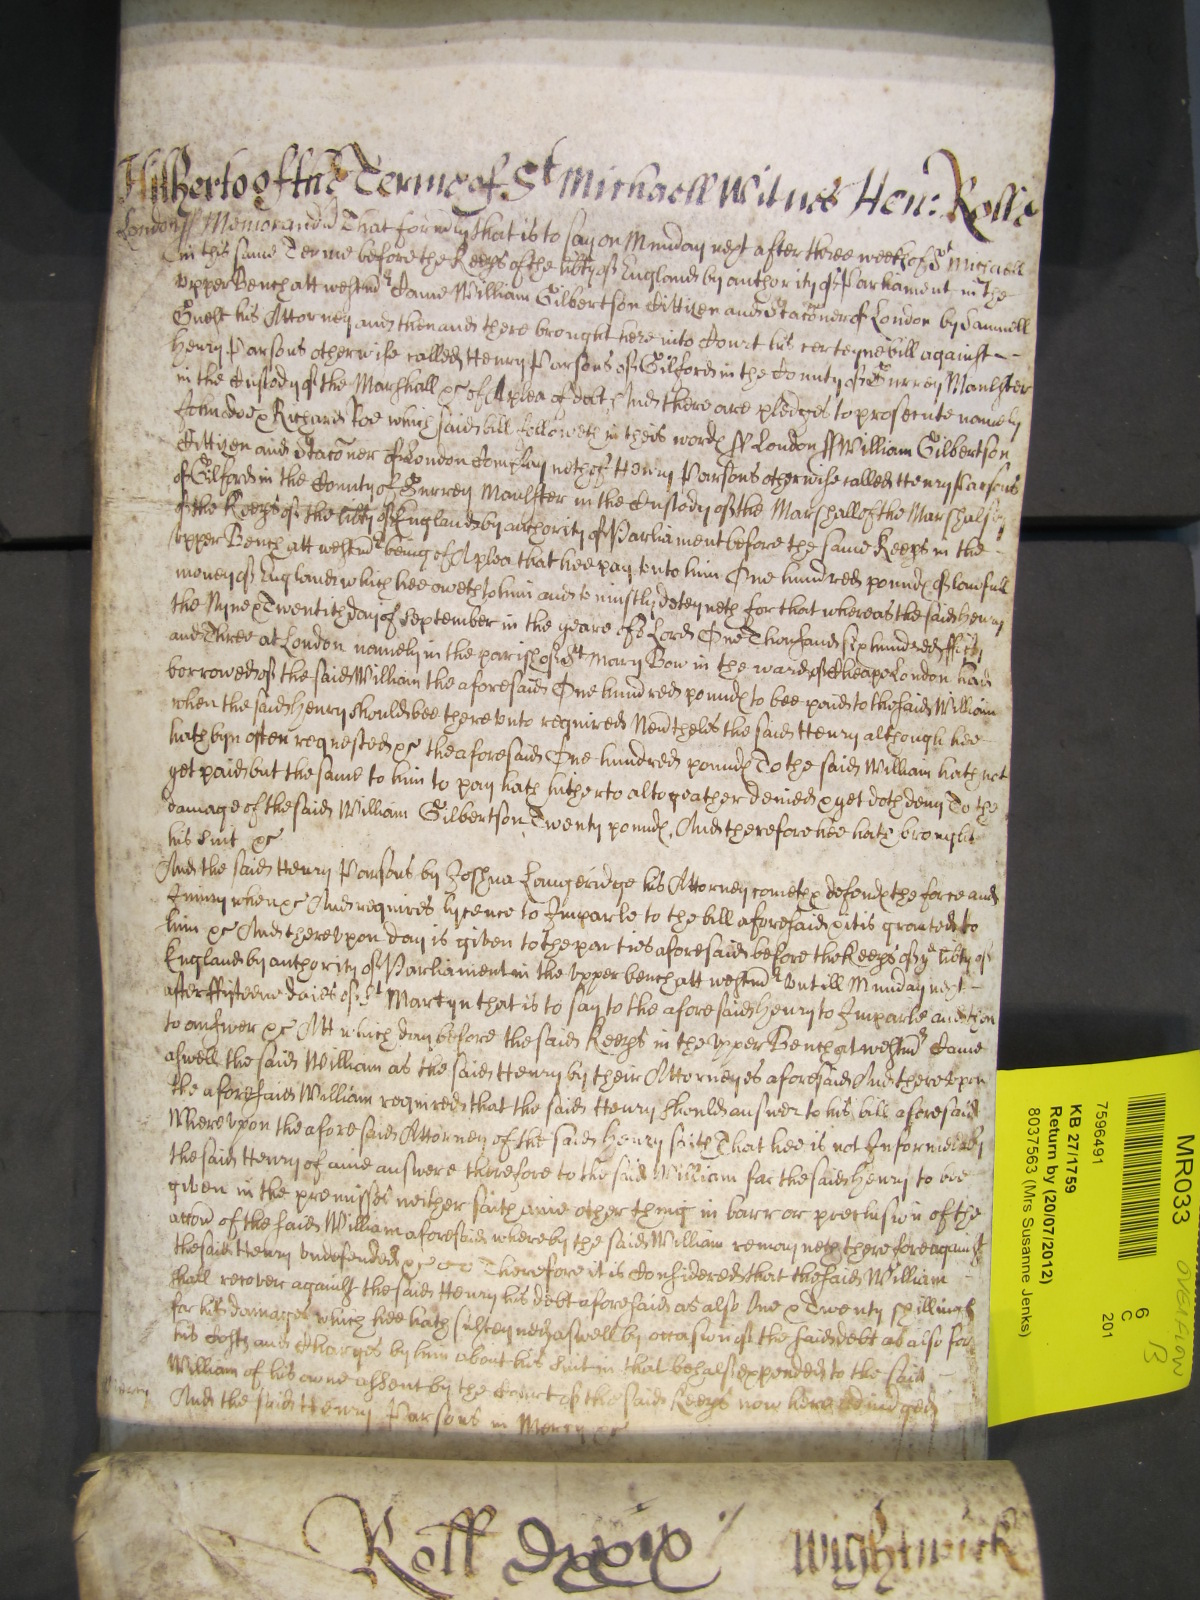 Hitherto of the Terme of St Michaell Witnes Hen: Rolle
London ss Memorand That formerly that is to say on Munday next after three weeks of St Michaell
in this same Terme before the Keeps of the libty of England by authority of Parliament in the
Upper Bench att westmr Came William Gilbertson Cittizen and Staconer of London by Samuell
his Attorney and then and there brought here into Court his certeyne bill against
Henry Parsons otherwise called Henry Parsons of Gilford in the County of Surrey Maulster
in the Custody of the Marshall &c of A plea of debt And there are pledges to prosecute namely
John doe & Richard Roe which said bill followeth in theis words ss London ss William Gilbertson
Cittizen and Staconer of London Complayneth of Henry Parsons otherwise called Henry Parsons
of Gilford in the County of Surrey Maulster in the Custody of the Marshall of the Marshalsey
of the Keeps of the libty of England by authority of Parliament before the same Keeps in the
upper Bench att westmr being of A plea that hee pay unto him One hundred pounds of lawfull
money of England which hee oweth to him and uniustly deteyneth for that whereas the said Henry
the Nyne & Twentith day of September in the yeare of or Lord One Thousand six hundred ffifty
and Three at London namely in the parish of St Mary Bow in the ward of Cheape London had
borrowed of the said William the aforesaid One hundred pounds to bee paid to the said William
when the said Henry should bee thereunto required Nevertheles the said Henry although hee
hath byn often requested &c the aforesaid One hundred pounds To the said William hath not
yet paid but the same to him to pay hath hitherto altogeather denied & yet doth deny To the
damage of the said William Gilbertson Twenty pounds, And therefore hee hath brought
his suit &c
And the said Henry Parsons by Joshua Langeridge his Attorney cometh & defends the force and
Iniury when &c And requires lycence to Imparle to the bill aforesaid & it is granted to
him &c And thereupon day is given to the parties aforesaid before the Keeps of ye libty of
England by authority of Parliament in the upper bench att westmr Untill Munday next
after ffifteene daies of St Martyn that is to say to the aforesaid Henry to Imparle and then
to answer &c Att which day before the said Keeps in the upper Bench at westmr Came
aswell the said William as the said Henry by their Attorneyes aforesaid And thereupon
the aforesaid William required that the said Henry should answer to his bill aforesaid
Whereupon the aforesaid Attorney of the said Henry saith That hee is not Informed by
the said Henry of anie answere therefore to the said William for the said Henry to bee
given in the premisses neither saith anie other thing in barr or preclusion of the
accon of the said William aforesaid whereby the said William remayneth therefore against
the said Henry undefended &c Therefore it is Considered that the said William
shall recover against the said Henry his debt aforesaid as also One & Twenty shillings
for his damages which hee hath susteyned aswell by occasion of the said debt as also for
his Costs and Charges by him about his suit in that behalf expended to the said
William of his owne assent by the Court of the said Keeps now here adiudged
And the said Henry Parsons in Mercy &c
Roll dxxix
Wightwick
MR033
OVERFLOW
13
6
C
201
7596491
KB 27/1759
Return by (20/07/2012)
8037563 (Mrs Susanne Jenks)